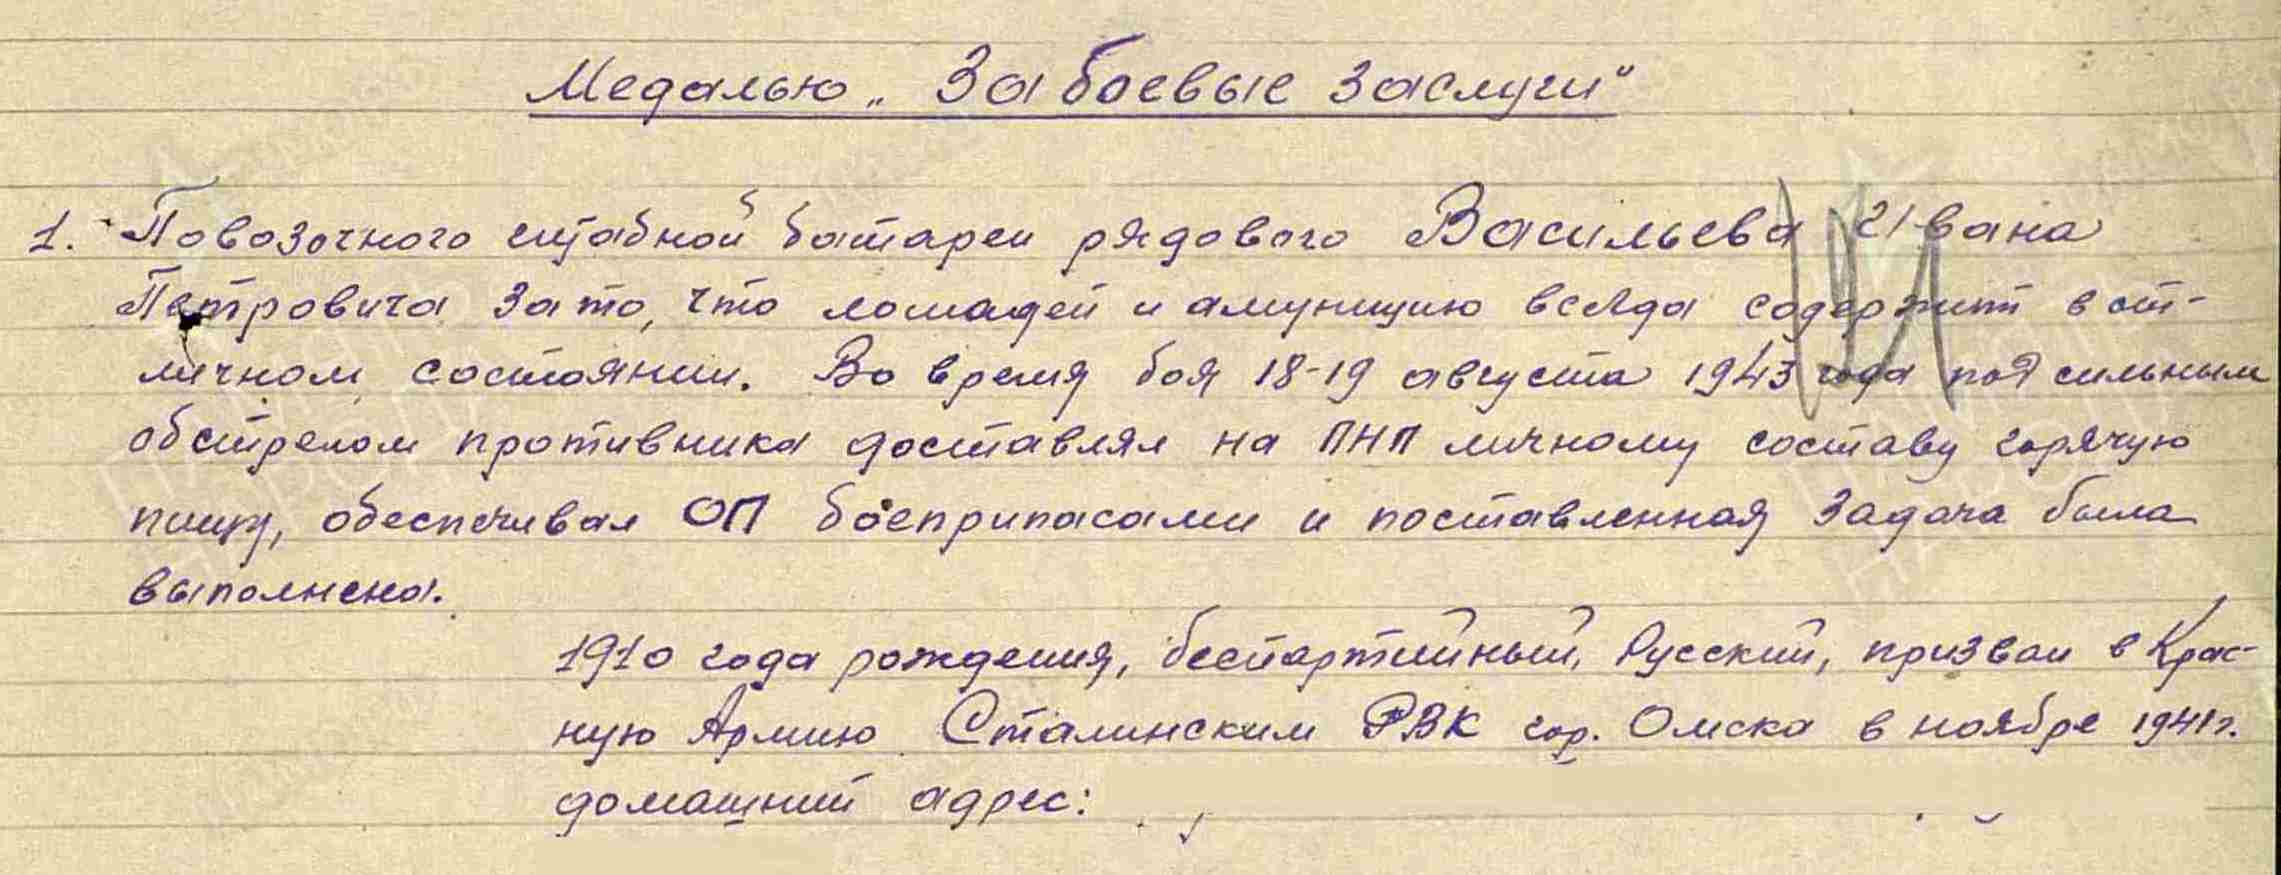 Медалью „За боевые заслуги"
1. Повозочного штабной батареи рядового Васильева Ивана
Петровича за то, что лошадей и амуницию всегда содержит в от-
личном состоянии. Во время боя 18-19 августа 1943 года под сильным
обстрелом противника доставлял на ПНП личному составу горячую
пищу, обеспечивал ОП боеприпасами и поставленная задача была
выполнена.
1910 года рождения, беспартийный, Русский, призван в Крас-
ную Армию Сталинским РВК гор. Омска в ноябре 1941г.
домашний адрес: